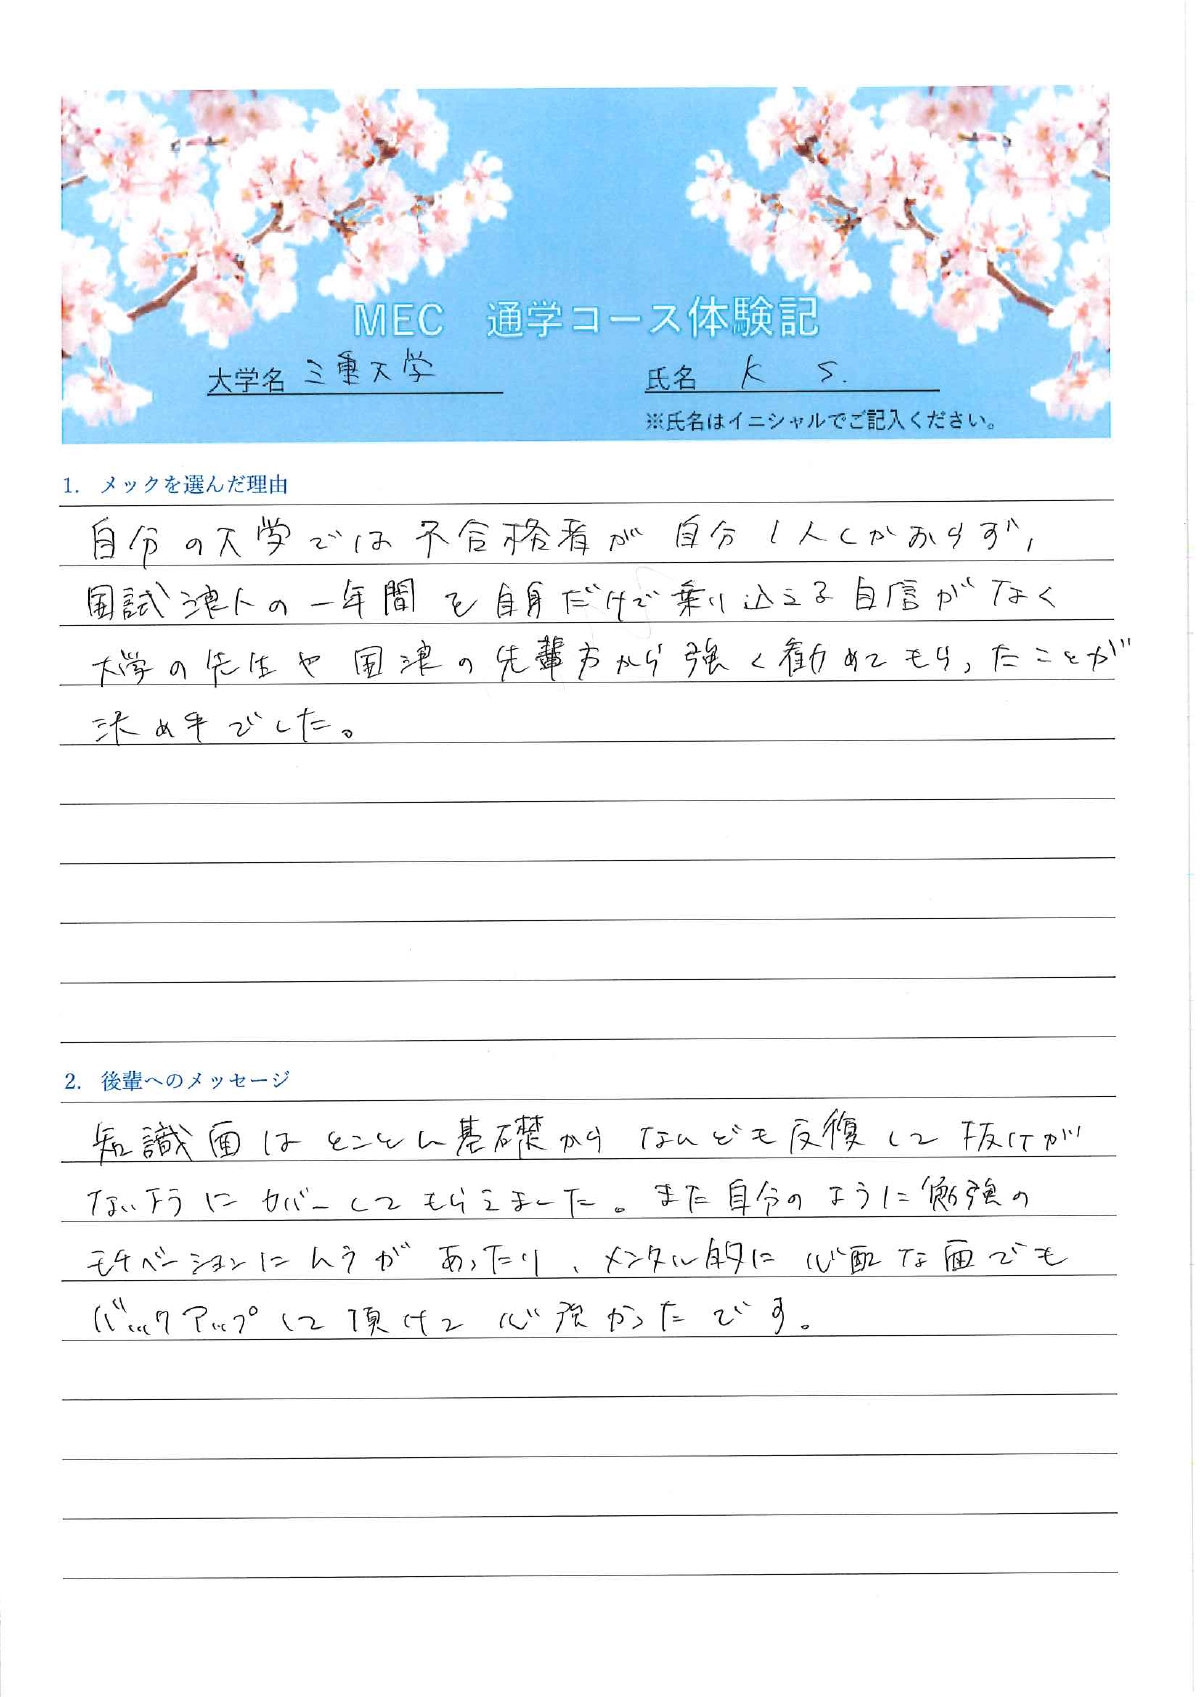 MEC 通学コース体験記
大学名 三重大学
氏名 K S.
※氏名はイニシャルでご記入ください。
1. メックを選んだ理由
自分の大学では不合格者が自分1人しかおらず、
国試浪人の一年間を自身だけで乗り込える自信がなく
大学の先生や国浪の先輩方から強く勧めてもらったことが
決め手でした。
2. 後輩へのメッセージ
知識面はとことん基礎からなんども反復して抜けが
ないようにカバーしてもらえました。また自分のように勉強の
モチベーションにムラがあったり、メンタル的に心配な面でも
バックアップして頂けて心強かったです。